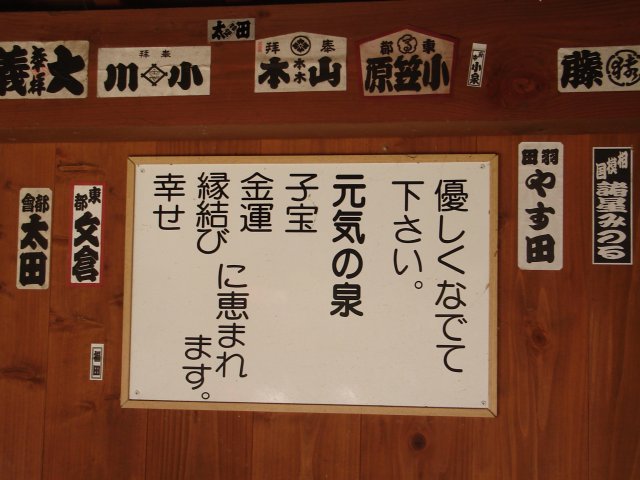 優しくなでて
下さい。
元気の泉
子宝
金運
縁結び
幸せ
に恵まれ
ます。
太田
奉拝
小川
奉拝
山本
東都
小笠原
小泉
藤
大義
奉拝
羽田
やす田
相模国
諸星みつる
東都
文倉
都會
太田